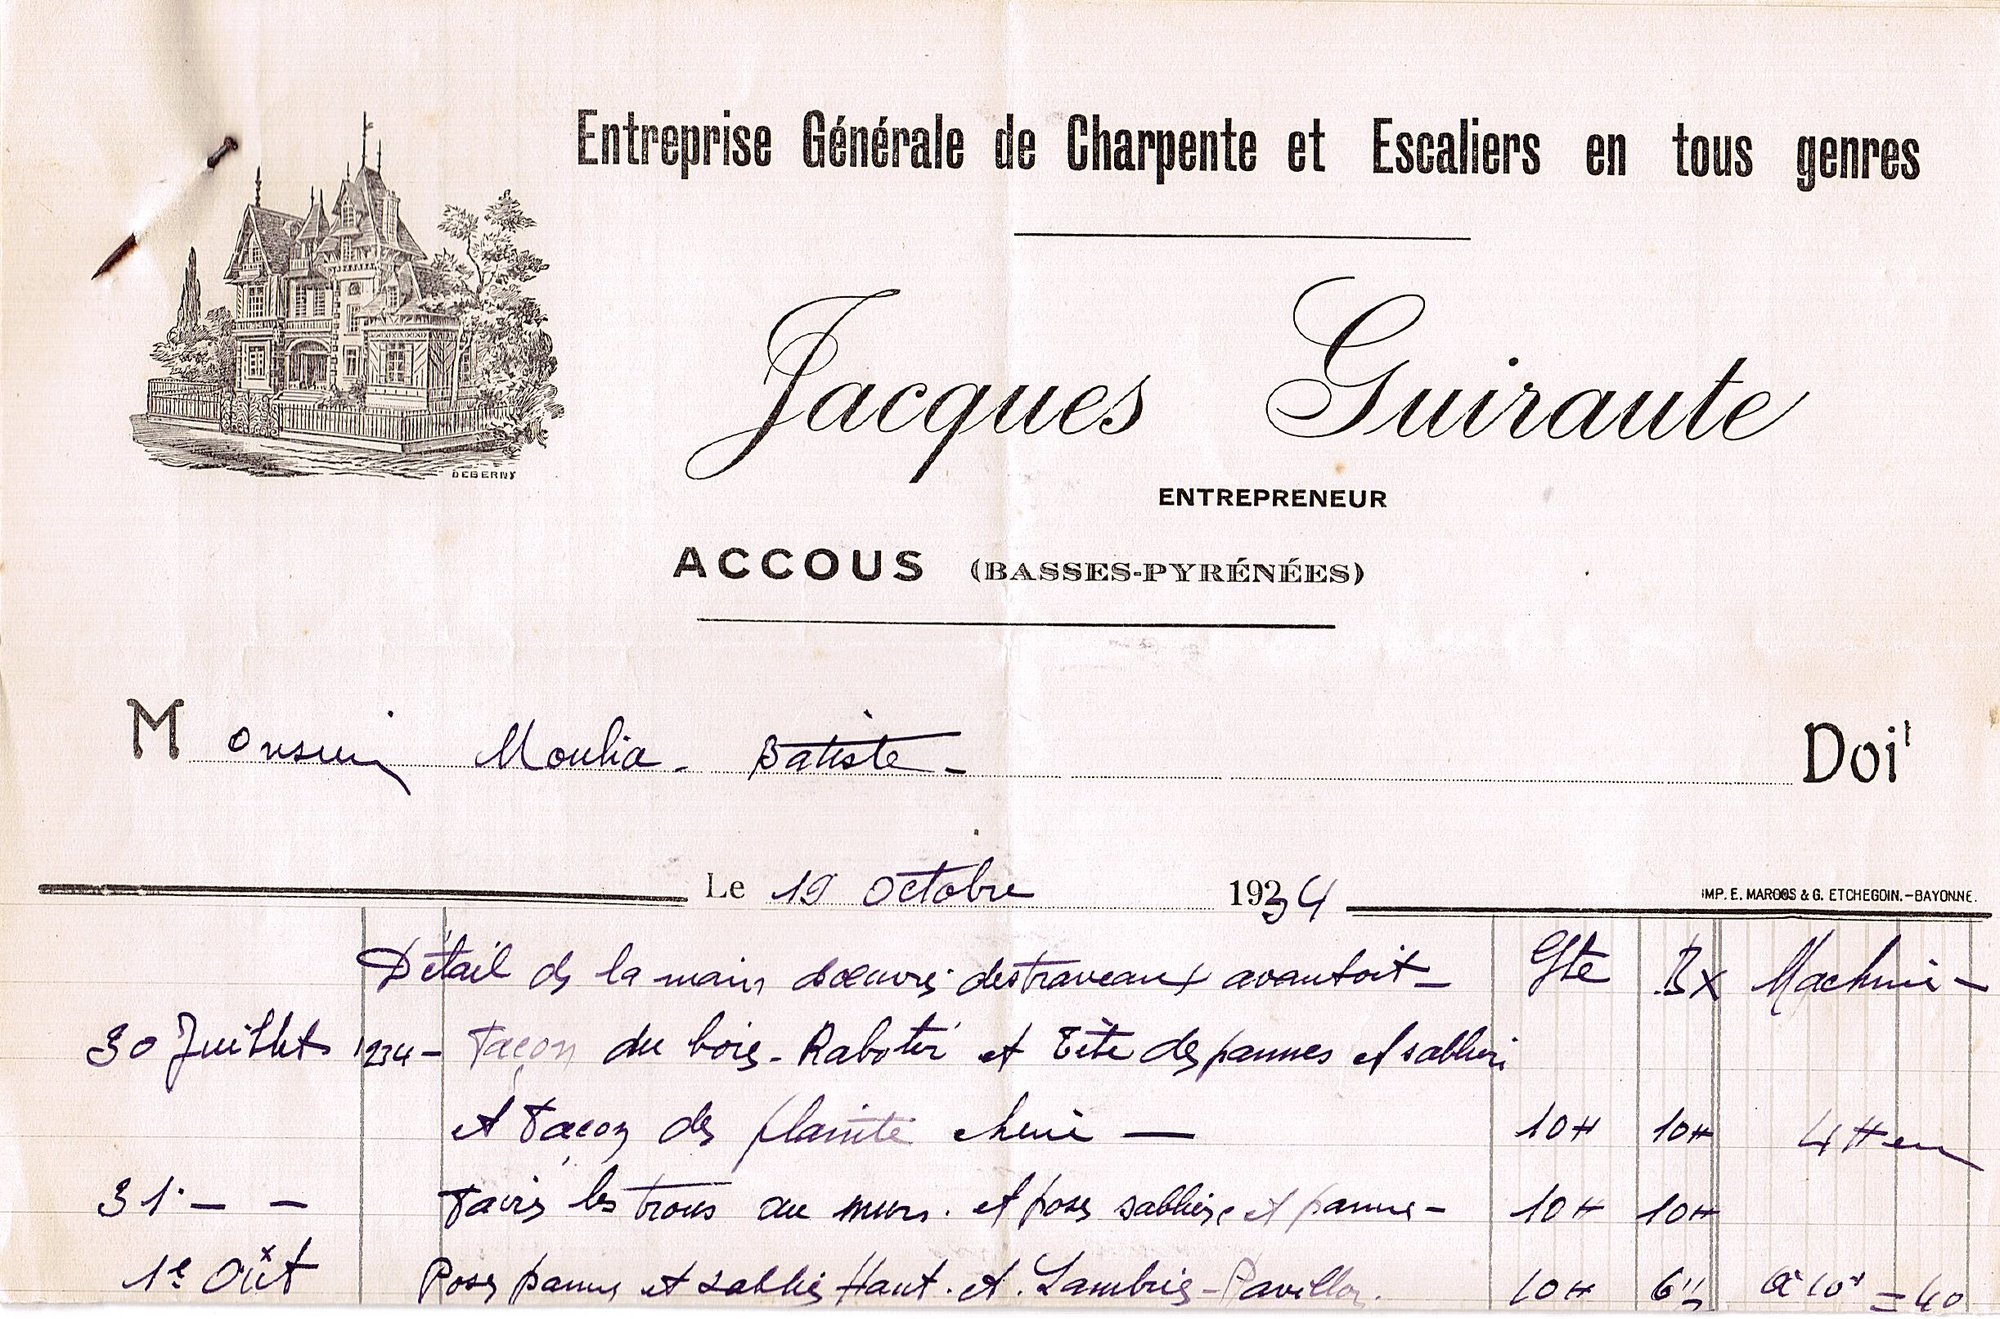 Entreprise Générale de Charpente et Escaliers en tous genres
DEBERNY
Jacques Guiraute
ENTREPRENEUR
ACCOUS (BASSES-PYRÉNÉES)
Monsieur Moulia - Batiste - Doit
Le 19 Octobre 1934
IMP. E. MAROOS & G. ETCHEGOIN. - BAYONNE.
Détail de la main des travaeaux avantoit - Gte Bx Machine -
30 Juillet 1934 - Façon du bois - Raboter et Tête des pannes et sablieri
et Façon des plainte cheni — 10H 10H 4H en
31 - - Faires les trous au murs. et poses sabliere et panne - 10H 10H
1e Oût Poses pannes et sablies Haut. et. Lambris - Pavillon. 10H 6H à 10f = 40